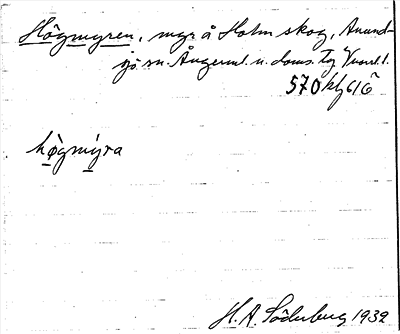 Högmyren, myr å Holm skog, Anund-
sjö sn. Ångerml. n. doms.
570
högmyra
H. A. Söderberg 1939